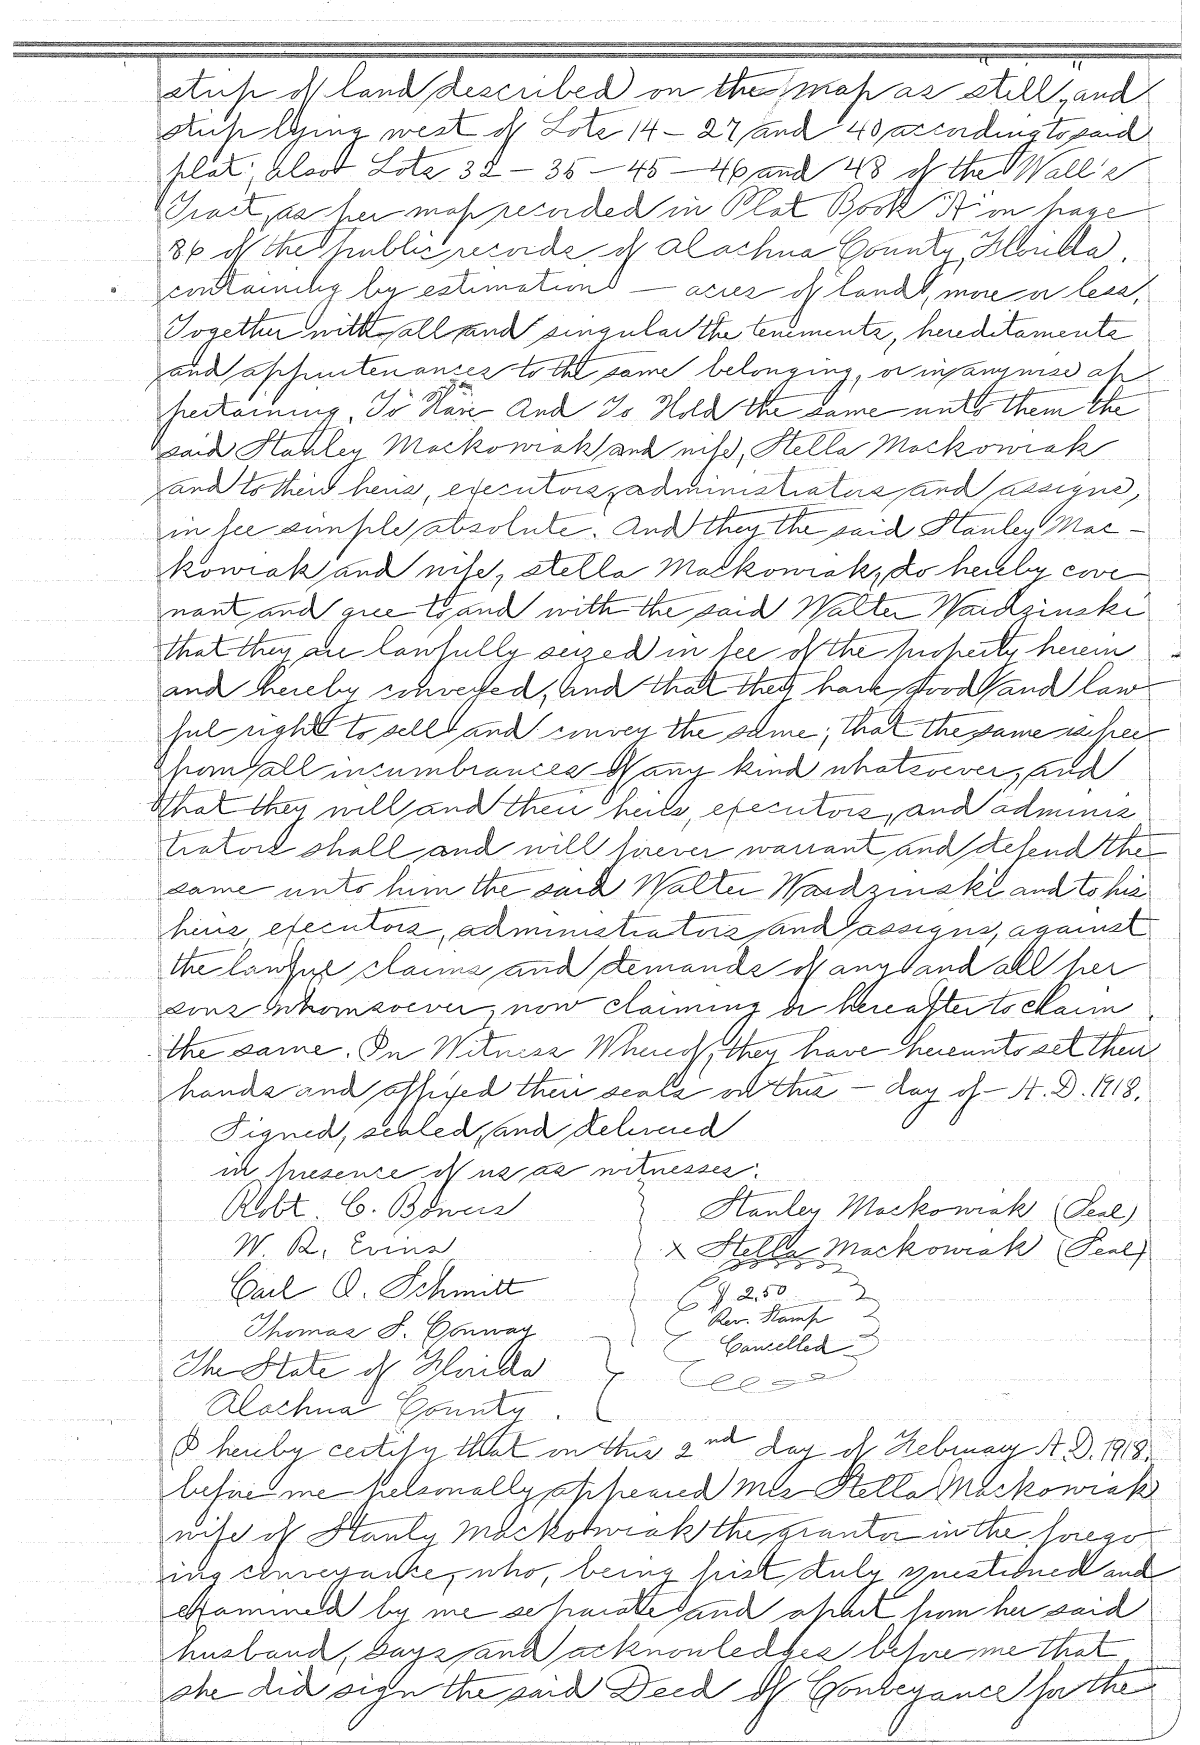 strip of land described on the map as "still", and
strip lying west of Lots 14 - 27 and 40 according to said
plat; also Lots 32 - 35 - 45 - 46 and 48 of the Wall's
Tract, as per map recorded in Plat Book "A" on page
86 of the public records of Alachua County, Florida.
containing by estimation — acres of land, more or less.
Together with all and singular the tenements, hereditaments
and appurtenances to the same belonging, or in anywise ap
pertaining. To Have And To Hold the same unto them the
said Stanley Mackowiak and wife, Stella Mackowiak
and to their heirs, executors, administrators and assigns,
in fee simple absolute. And they the said Stanley Mac-
kowiak and wife, Stella Mackowiak, do hereby cove
nant and gree to and with the said Walter Waidzinski
that they are lawfully seized in fee of the property herein
and hereby conveyed, and that they have good and law
ful right to sell and convey the same; that the same is free
from all incumbrances of any kind whatsoever, and
that they will and their heirs, executors, and adminis
trators shall and will forever warrant and defend the
same unto him the said Walter Waidzinski and to his
heirs, executors, administrators and assigns, against
the lawful claims and demands of any and all per
sons whomsoever, now claiming or hereafter to claim
the same. In Witness Whereof, they have hereunto set their
hands and affixed their seals on this — day of — A.D. 1918.
Signed, sealed, and delivered
in presence of us as witnesses:
Robt. C. Bowers
Stanley Mackowiak (Seal)
W. R. Evins
x Stella Mackowiak (Seal)
Carl O. Schmitt
$ 2.50
Rev. Stamp
Thomas S. Conway
Cancelled
The State of Florida
Alachua County.
I hereby certify that on this 2nd day of February A.D. 1918.
before me personally appeared Mrs Stella Mackowiak
wife of Stanly Mackowiak the grantor in the forego
ing conveyance, who, being first duly questioned and
examined by me separate and apart from her said
husband, says and acknowledges before me that
she did sign the said Deed of Conveyance for the